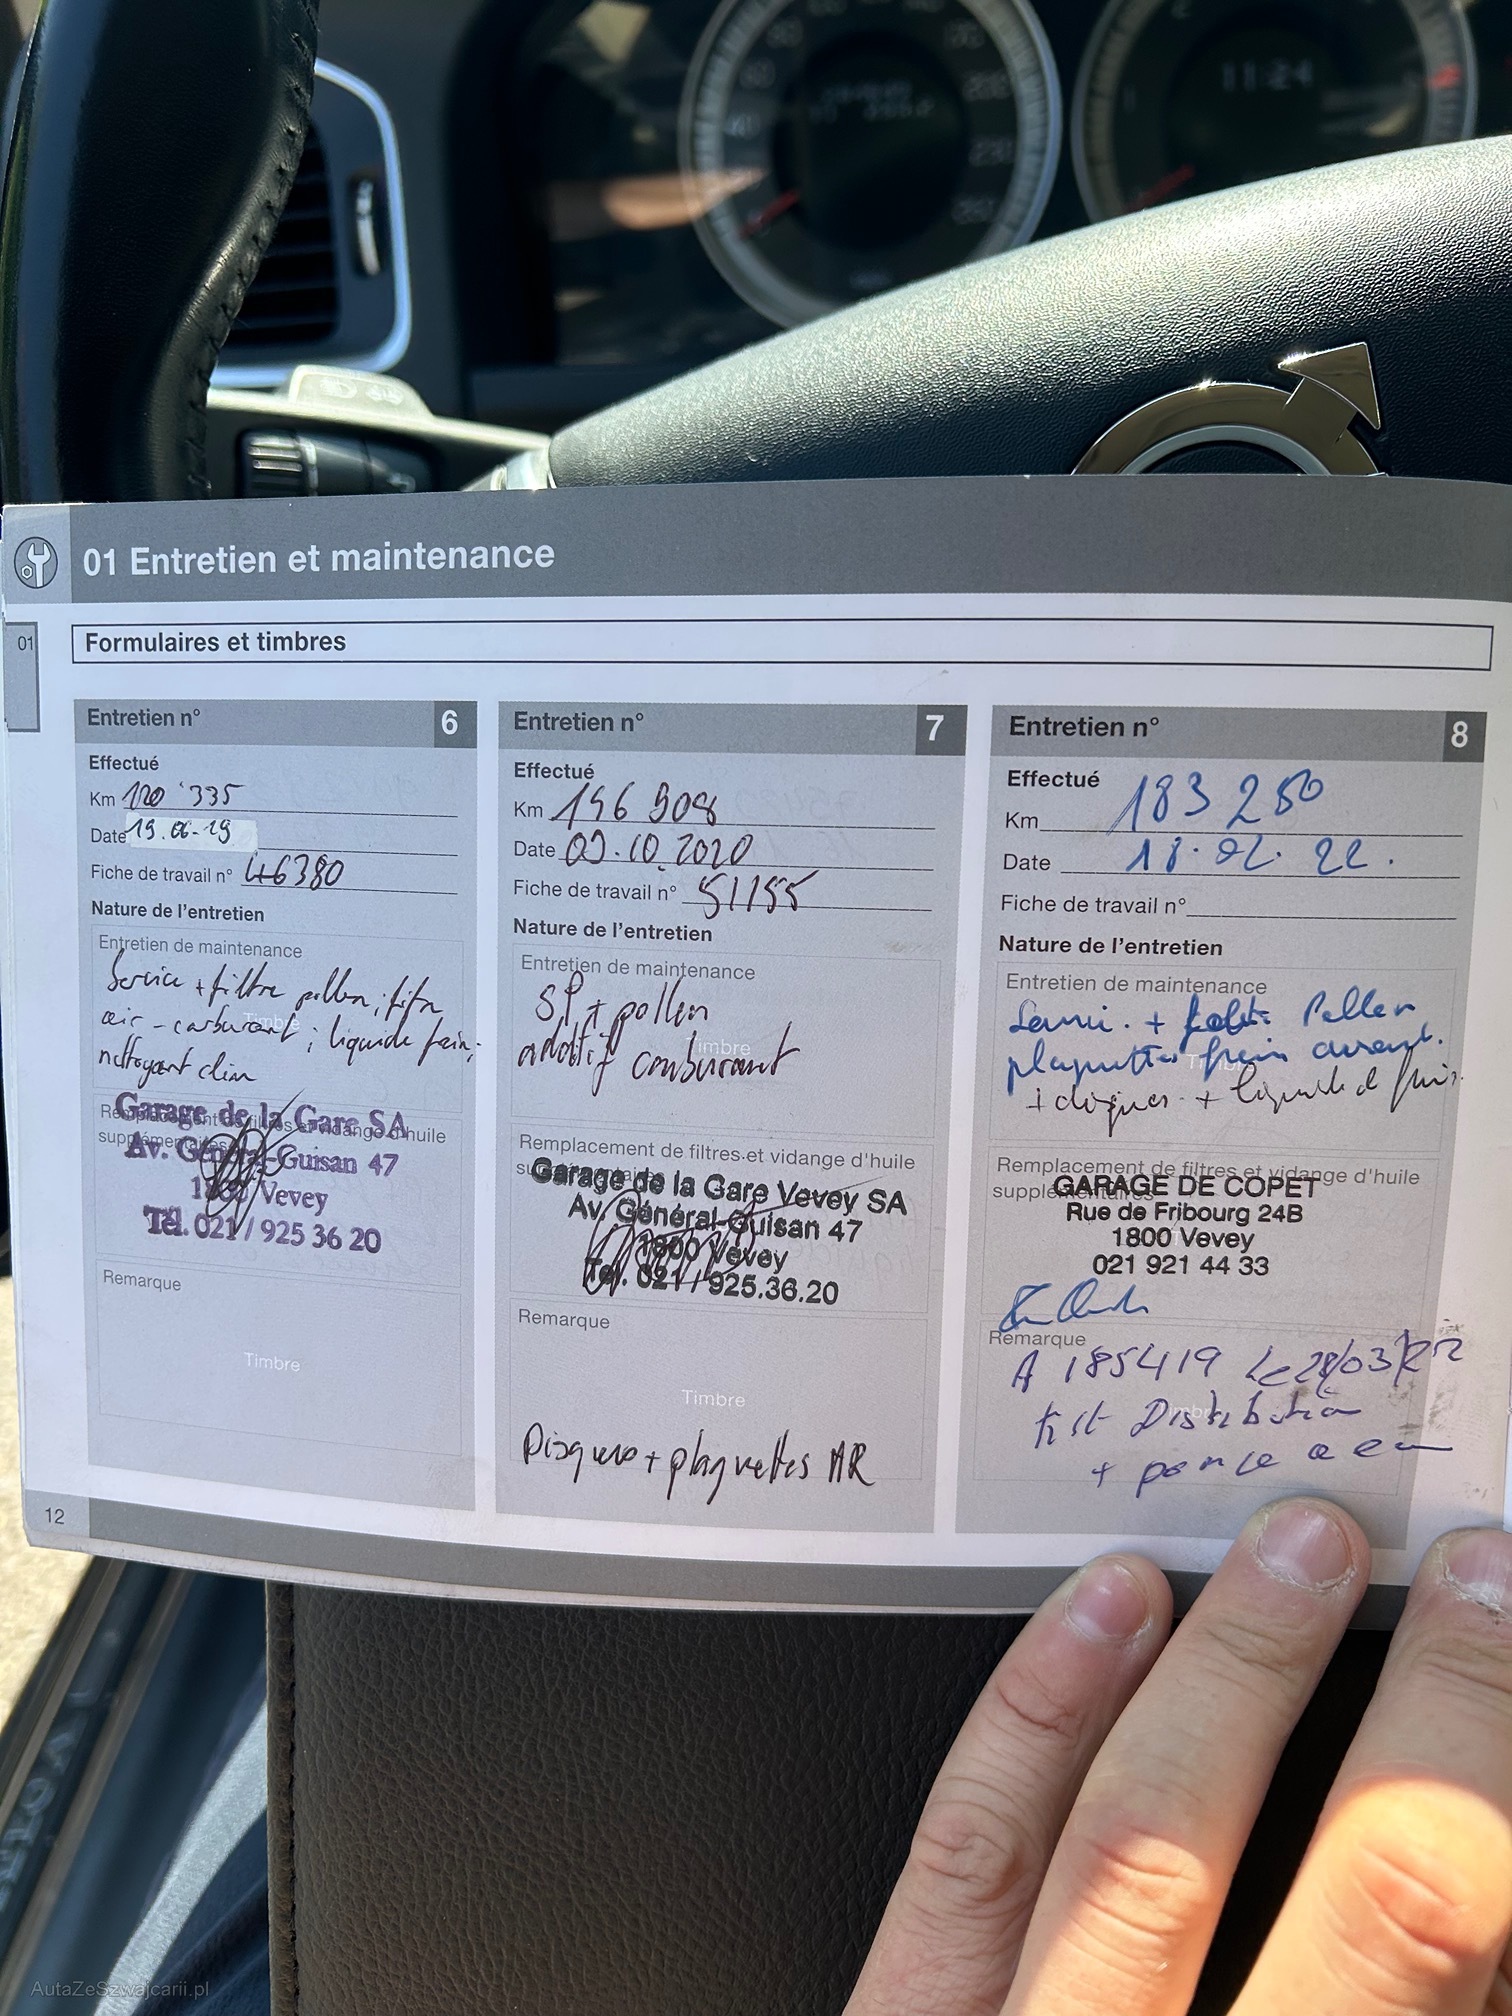 11:24
01 Entretien et maintenance
01
Formulaires et timbres
Entretien n° 6
Effectué
Km 120'335
Date 19.06-19
Fiche de travail n° 46380
Nature de l'entretien
Entretien de maintenance
Service + filtre pollen; filtre
air - carburant; liquide frein;
Timbre
nettoyant clim
Remplacement de filtres et vidange d'huile
supplémentaires
Garage de la Gare SA
Av. Général-Guisan 47
1800 Vevey
Tél. 021 / 925 36 20
Remarque
Timbre
12
Entretien n° 7
Effectué
Km 146 908
Date 09.10.2020
Fiche de travail n° 51155
Nature de l'entretien
Entretien de maintenance
SP + pollen
Timbre
additif carburant
Remplacement de filtres et vidange d'huile
supplémentaires
Garage de la Gare Vevey SA
Av. Général-Guisan 47
1800 Vevey
Tel. 021 / 925.36.20
Remarque
Timbre
Disques + plaquettes AR
Entretien n° 8
Effectué
Km 183 250
Date 18.02.22.
Fiche de travail n°
Nature de l'entretien
Entretien de maintenance
+ Pollen
plaquettes frein avant.
Timbre
+ disques + liquide d frein
Remplacement de filtres et vidange d'huile
supplémentaires
GARAGE DE COPET
Rue de Fribourg 24B
1800 Vevey
021 921 44 33
Remarque
A 185419 Le 28/03/22
Timbre
Kit Distribution
+ pompe a eau
AutaZeSzwajcarii.pl